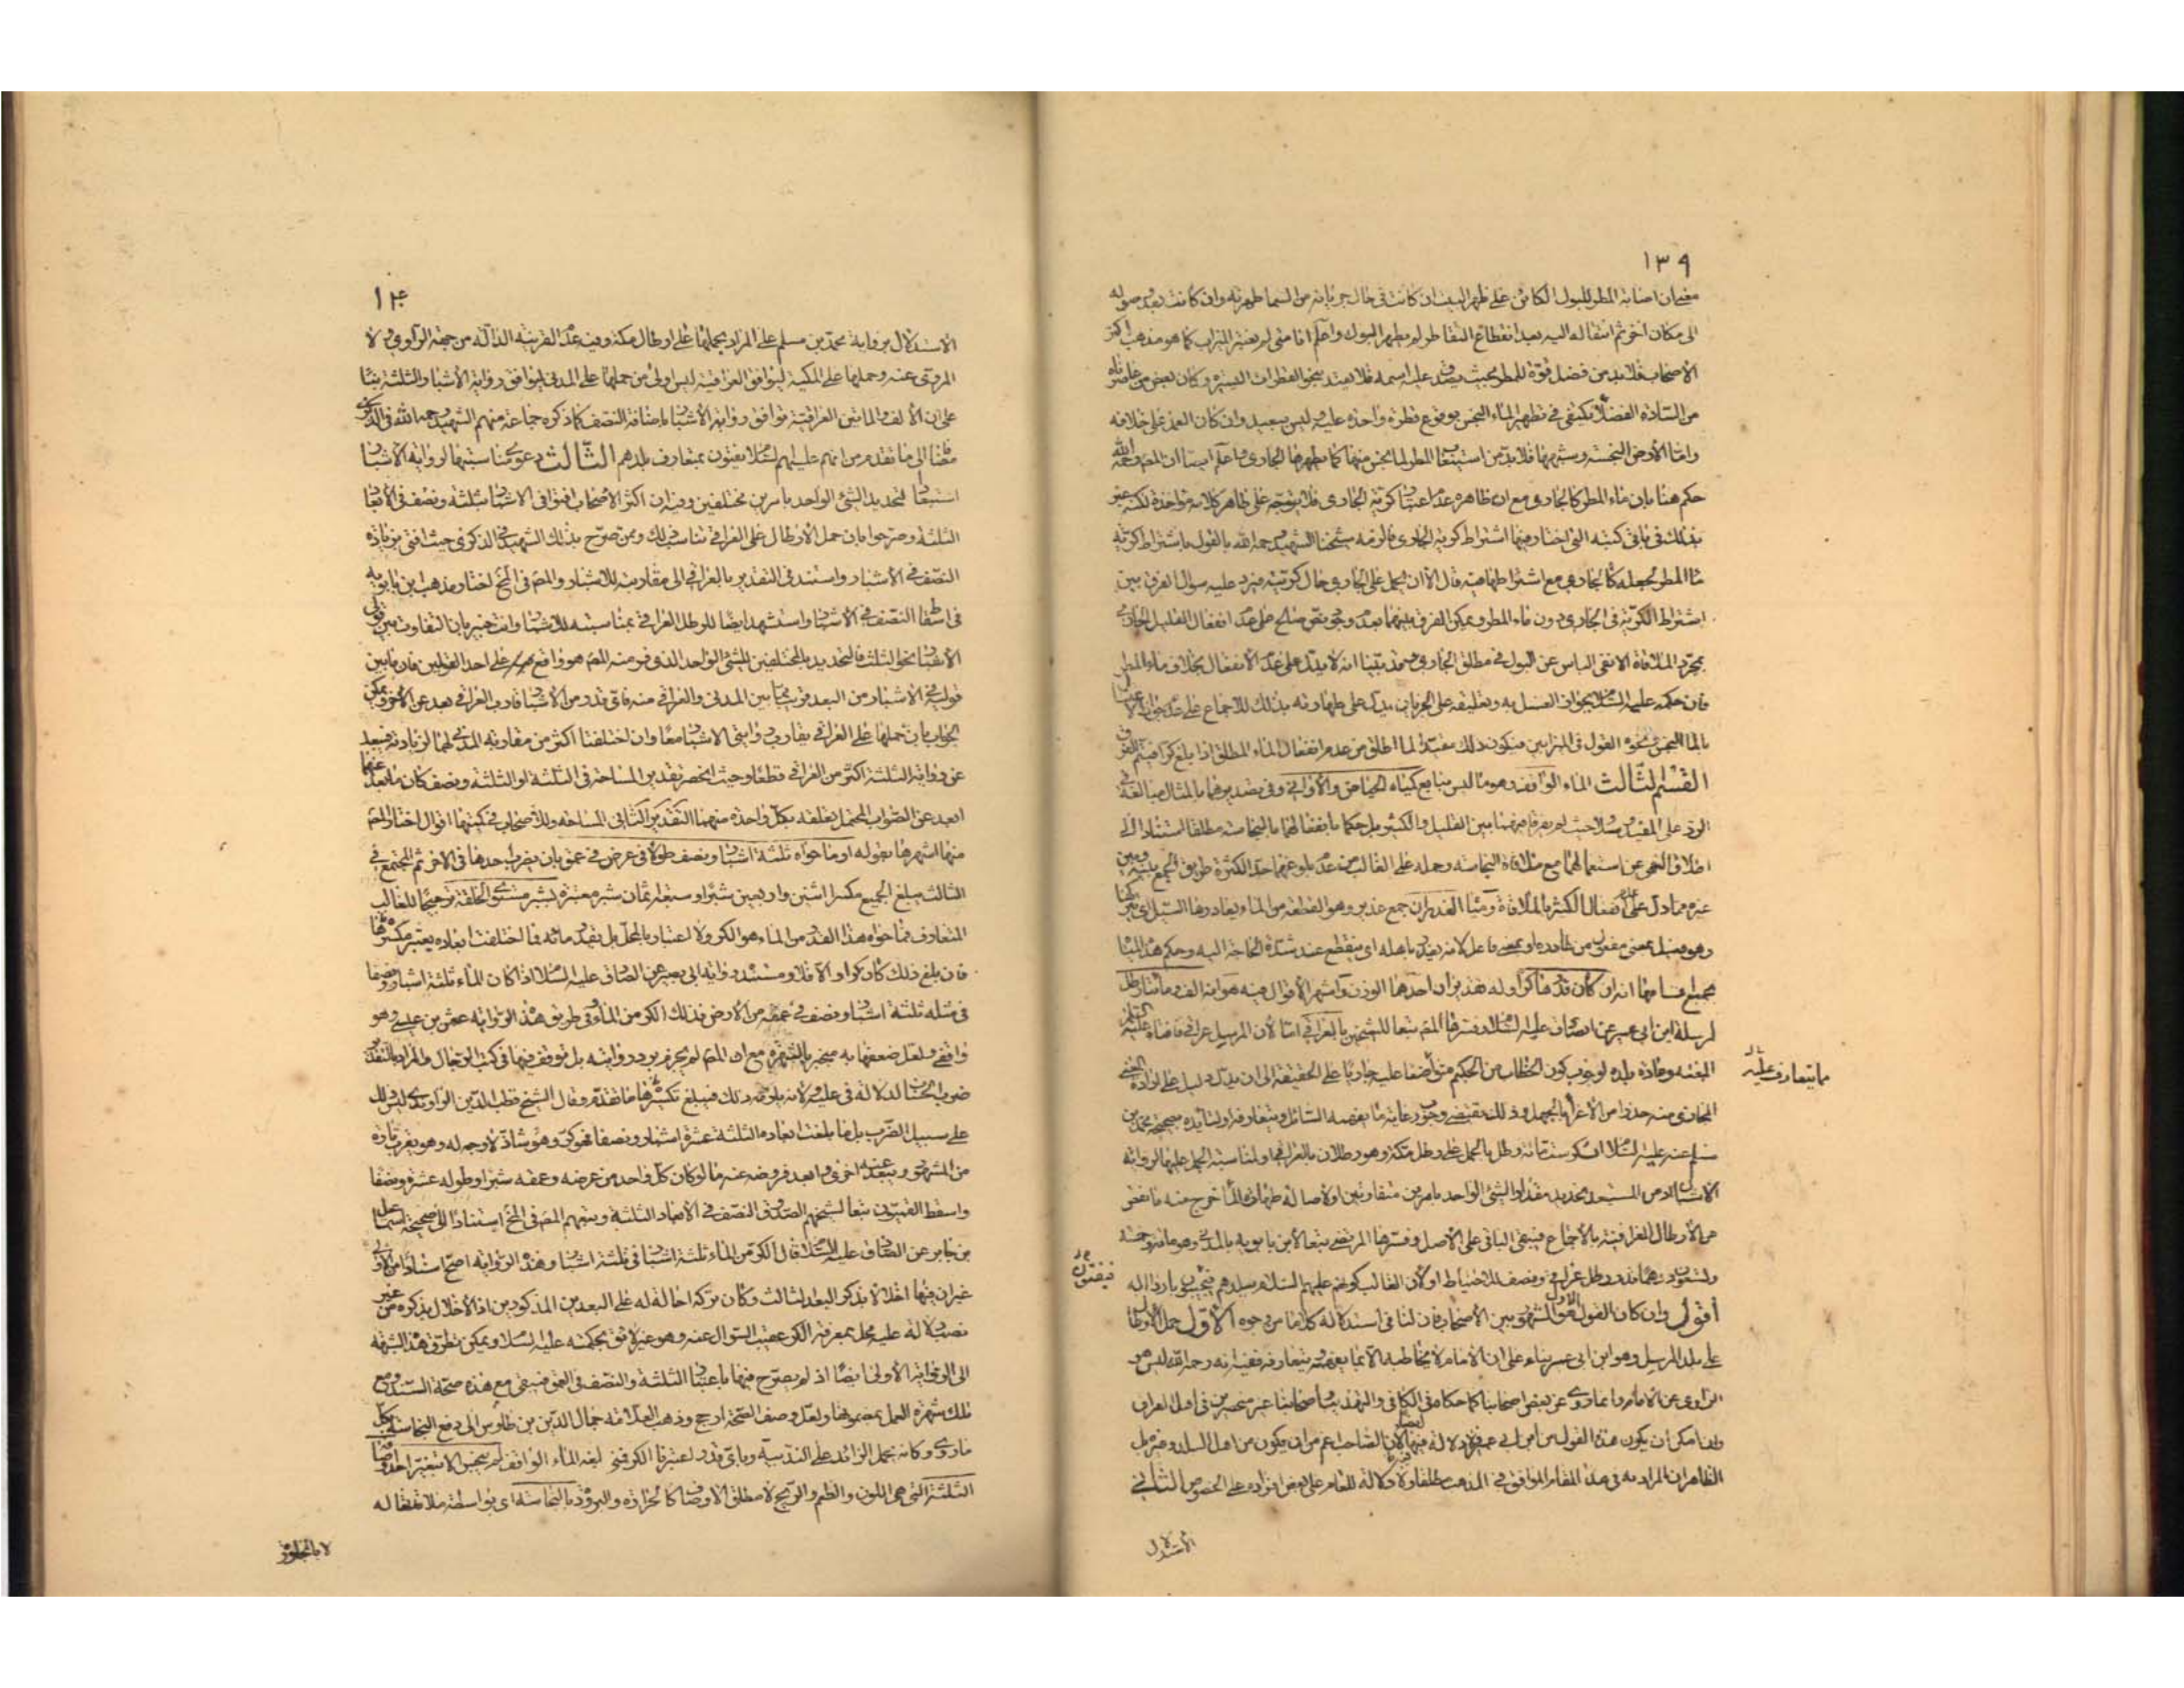 ١٣٩
مقتضاه ان اصابة المطر للبول الكائن على ظهر البيت ان كانت فى حال جريانه من السما طهرته وان كانت بعد وصوله
الى مكان اخر ثم انتقاله اليه بعد انقطاع التقاطر لم يطهر البول واعلم انا متى لم نعتبر الميزاب كما هو مذهب اكثر
الاصحاب فلا بد من فضل قوة للمطر بحيث يصدق عليه اسمه فلا يعتد بنحو القطرات اليسيرة وكان بعض من عاصرناه
من السادة الفضلا يكتفى فى تطهير الماء النجس بوقوع قطرة واحدة عليه وليس ببعيد وان كان العمل على خلافه
واما الارض النجسة وشبهها فلا بد من استيعاب المطر لما نجس منها كما يطهرها الجارى واعلم ايضا ان المصـ رحمه الله
حكم هنا بان ماء المطر كالجارى مع ان ظاهره عدم اعتبار كرية الجارى فلا يتوجه على ظاهر كلامه مؤاخذة لكنه عبر
بذلك فى باقى كتبه التى اختار فيها اشتراط كرية الجارى فالزمه شيخنا الشهيد رحمه الله بالقول باشتراط كرية
ماالمطر لجعله كالجارى مع اشتراطها فيه قال الا ان يحمل على الجارى حال كريته فيرد عليه سوال الفرق بين
اشتراط الكرية فى الجارى دون ماء المطر ويمكن الفرق بينهما بعدم وجود نص صالح على عدم انفعال القليل الجارى
بمجرد الملاقاة الا نفى الباس عن البول فى مطلق الجارى وقد بينا انه لا يدل على عدم الانفعال بخلاف ماء المطر
فان حكمه عليه السلام بجواز الغسل به وتعليقه على الجريان يدل على طهارته بذلك للاجماع على عدم جواز الاغتسال
بالما النجس ونحوه القول فى الميزابين فيكون ذلك مقيدا لما اطلق من عدم انفعال الماء المطلق اذا بلغ كرا فيتم الفرق
القسم الثالث الماء الواقف وهو ما ليس بنابع كمياه الحياض والاوانى وفى تصديرهما بالمثال مبالغة فى
الرد على المفيد وسلار حيث لم يفرقا فيهما بين القليل والكثير بل حكما بانفعالهما بالنجاسة مطلقا استنادا الى
اطلاق النهى عن استعمالهما مع ملاقاة النجاسة وحمله على الغالب من عدم بلوغهما حد الكثرة طريق الجمع بينه وبين
غيره مما دل على عدم انفعال الكثير بالملاقاة ومياه الغدران جمع غدير وهو القطعة من الماء يغادرها السيل اى يتركها
وهو فعيل بمعنى مفعول من غادره او بمعنى فاعل لانه يغدر باهله اى ينقطع عند شدة الحاجة اليه وحكم هذا الماء
بجميع اقسامها انه ان كان قدرها كرا وله تقديران احدهما الوزن واشهر الاقوال فيه هو انه الف ومائتا رطل
لمرسلة ابن ابى عمير عن الصادق عليه السلام وفسرها المصـ تبعا للشيخين بالعراقى اما لان المرسل عراقى فافتاه عليه السلم
ما يتعارف عليه
البغية وعادة بلده لوجوب كون الخطاب من الحكيم متواضعا عليه جاريا على الحقيقة الى ان يدل دليل على ارادة المعنى
المجازى منه حذرا من الاغراء بالجهل وذلك يقتضى وجوب رعاية ما يفهمه السائل ويتعارفه او لتأيده بصحيحة محمد بن
مسلم عنه عليه السلام الكر ستمائة رطل بالحمل على رطل مكة وهو رطلان بالعراقى او لمناسبة الحمل عليها لرواية
الاشبار اذ من المستبعد تحديد مقدار الشى الواحد بامرين متفاوتين او لاصالة طهارة الماء خرج منه ما نقص
عن الارطال العراقية بالاجماع فيبقى الباقى على الاصل وفسرها المرتضى تبعا لابن بابويه بالمدنى وهو مائة وخمسة
وتسعون درهما قدر رطل عراقى ونصف للاحتياط او لان الغالب كونهم عليهم السلام ببلدهم فيجيبون بارطاله
فيفتون
اقول وان كان القول الاول هو المشهور بين الاصحاب فان لنا فى استدلاله كلاما من وجوه الاول حمل الارطال
على بلد المرسل وهو ابن ابى عمير بناء على ان الامام لا يخاطبه الا بما يفهمه ويتعارفه ففيه انه رحمه الله ليس هو
الراوى عن الامام وانما روى عن بعض اصحابنا كما حكاه فى الكافى والتهذيب واصحابنا غير منحصرين فى اهل العراق
وان امكن ان يكون هذا القول من ابن ابى عمير فلا دلالة فيها ايضا لان الصاحب اعم من ان يكون من اهل البلد وغيره بل
الظاهر ان المراد به فى هذا المقام الموافق فى المذهب مطلقا ولا دلالة للعام على بعض افراده على الخصوص الثانى
الاستدلال
١٤٠
الاستدلال برواية محمد بن مسلم على المراد بحملها على ارطال مكة وفيه عدم القرينة الدالة من جهة الراوى ولا
المروى عنه وحملها على المكية ليوافق العراقية ليس اولى من حملها على المدنى ليوافق رواية الاشبار الثلثة بناء
على ان الالف والمائتين العراقية توافق رواية الاشبار باضافة النصف كما ذكره جماعة منهم الشهيد رحمه الله فى الذكرى
مضافا الى ما تقدم من انهم عليهم السلام يفتون بمتعارف بلدهم الثالث دعوى مناسبتها لرواية الاشبار
استبعادا لتحديد الشئ الواحد بامرين مختلفين وفيه ان اكثر الاصحاب افتوا فى الاشبار بثلثة ونصف فى الابعاد
الثلثة وصرحوا بان حمل الارطال على العراقى تناسب ذلك وممن صرح بذلك الشهيد فى الذكرى حيث افتى بزيادة
النصف فى الاشبار واستند فى التقدير بالعراقى الى مقاربته للاشبار والمصـ فى المخ اختار مذهب ابن بابويه
فى اسقاط النصف فى الاشبار واستشهد ايضا للرطل العراقى بمناسبته للاشبار وانت خبير بان التفاوت بين قولى
الاشبار بنحو الثلث فالتحديد بالمختلفين للشئ الواحد الذى فر منه المصـ هو واقع على احد القولين فان ما بين
قولى فى الاشبار من البعد قريب مما بين المدنى والعراقى منه فاى قدر من الاشبار قارب العراقى بعد عن الاخر ويمكن
الجواب بان حملها على العراقى يقارب روايتى الاشبار معا وان اختلفتا اكثر من مقاربة المدنى لهما لزيادته فيبعد
عن رواية الثلثة اكثر من العراقى قطعا وحيث انحصر تقدير المساحة فى الثلثة او الثلثة ونصف كان ما بعد عنهما
ابعد عن الصواب المحتمل تعلقه بكل واحدة منهما التقدير الثانى المساحة وللاصحاب فى كميتها اقوال اختار المصـ
منها اشهرها بقوله او ما حواه ثلثة اشبار ونصف طولا فى عرض فى عمق بان يضرب احدها فى الاخر ثم المجتمع فى
الثالث يبلغ الجميع مكسرا اثنين واربعين شبرا وسبعة اثمان شبر معتبرة بشبر مستوى الخلقة ترجيحا للغالب
المتعارف فما حواه هذا القدر من الماء هو الكر ولا اعتبار بالمحل بل بقدر مائه فما اختلفت ابعاده يعتبر مكسرها
فان بلغ ذلك كان كرا والا فلا ومستنده رواية ابى بصير عن الصادق عليه السلام اذا كان الماء ثلثة اشبار ونصفا
فى مثله ثلثة اشبار ونصف فى عمقه من الارض فذلك الكر من الماء وفى طريق هذه الرواية عثمن بن عيسى وهو
واقفى ولعل ضعفها به منجبر بالشهرة مع ان المصـ لم يجزم برد روايته بل توقف فيها فى كتب الرجال والمراد بالتقدير
ضرب الحساب لدلالة فى عليه ولانه يلزمه ذلك فيبلغ تكسيرها ما تقدم وقال الشيخ قطب الدين الراوندى ليس ذلك
على سبيل الضرب بل ما بلغت ابعاده الثلثة عشرة اشبار ونصفا فهو كر وهو شاذ لا وجه له وهو يقرب تارة
من المشهور ويبعد عنه اخرى وابعد فروضه عنه ما لو كان كل واحد من عرضه وعمقه شبرا وطوله عشرة ونصفا
واسقط القميون تبعا لشيخهم الصدوق النصف فى الابعاد الثلثة وتبعهم المصـ فى المخ استنادا الى صحيحة اسماعيل
بن جابر عن الصادق عليه السلام قال الكر من الماء ثلثة اشبار فى ثلثة اشبار وهذه الرواية اصح اسنادا من الاولى
غير ان فيها اخلالا بذكر البعد الثالث وكان تركه احالة له على البعدين المذكورين اذ الاخلال بذكره من غير
نصب دلالة عليه مخل بمعرفة الكر عقيب السوال عنه وهو غير لائق بحكمته عليه السلام ويمكن تطرق هذه الشبهة
الى الرواية الاولى ايضا اذ لم يصرح فيها باعتبار الثلثة والنصف فى العمق فيبقى مع هذه صحة السند ومع
تلك شهرة العمل بمضمونها ولعل وصف الصحة ارجح وذهب العلامة جمال الدين بن طاوس الى دفع النجاسة بكل
ما روى وكانه يحمل الزائد على الندبية وباى قدر اعتبرنا الكر فمتى بلغه الماء الواقف لم ينجس الا بتغير احد اوصافه
الثلثة التى هى اللون والطعم والريح لا مطلق الاوصاف كالحرارة والبرودة بالنجاسة اى بواسطة ملاقاتها له
لا بالمجاورة